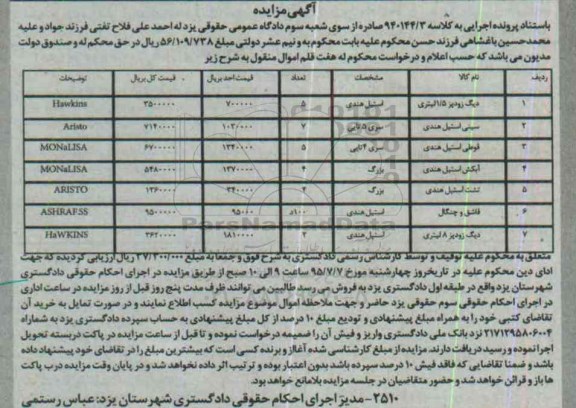 آگهی مزایده
باستناد پرونده اجرایی به کلاسه ۹۴۰۱۴۴/۳ صادره از سوی شعبه سوم دادگاه عمومی حقوقی یزد له احمد علی فلاح تفتی فرزند جواد و علیه
محمدحسین باغشاهی فرزند حسن محکوم علیه بابت محکوم به و نیم عشر دولتی مبلغ ۵۶/۱۰۹/۷۳۸ ریال در حق محکم له و صندوق دولت
مدیون می باشد که حسب اعلام و درخواست محکوم له هفت قلم اموال منقول به شرح زیر
ردیف نام کالا مشخصات تعداد قیمت احد بریال قیمت کل بریال توضیحات
۱ دیگ زودپز ۱/۵لیتری استیل هندی ۵ ۷۰۰۰۰۰ ۳۵۰۰۰۰۰ Hawkins
۲ سینی استیل هندی سری ۵تایی ۷ ۱۰۲۰۰۰۰ ۷۱۴۰۰۰۰ Aristo
۳ قوطی استیل هندی سری ۴تایی ۵ ۱۳۴۰۰۰۰ ۶۷۰۰۰۰۰ MONaLISA
۴ آبکش استیل هندی بزرگ ۴ ۱۳۷۰۰۰۰ ۵۴۸۰۰۰۰ MONaLISA
۵ تشت استیل هندی بزرگ ۴ ۳۴۰۰۰۰ ۱۳۶۰۰۰۰ ARISTO
۶ قاشق و چنگال استیل هندی ۱۰۰د ۹۵۰۰۰ ۹۵۰۰۰۰۰ ASHRAF.SS
۷ دیگ زودپز ۸لیتری استیل هندی ۲ ۱۸۱۰۰۰۰ ۳۶۲۰۰۰۰ HaWKINS
متعلق به محکوم علیه توقیف و توسط کارشناس رسمی دادگستری به شرح فوق و جمعا به مبلغ ۳۷/۳۰۰/۰۰۰ ریال ارزیابی گردیده که جهت
ادای دین محکوم علیه در تاریخ روز چهارشنبه مورخ ۹۵/۷/۷ ساعت ۹ الی ۱۰ صبح از طریق مزایده در اجرای احکام حقوقی دادگستری
شهرستان یزد واقع در طبقه اول دادگستری یزد به فروش می رسد طالبین می توانند ظرف مدت پنج روز قبل از روز مزایده در ساعات اداری
در اجرای احکام حقوقی سوم حقوقی یزد حاضر و جهت ملاحظه اموال موضوع مزایده کسب اطلاع نمایند و در صورت تمایل به خرید آن
تقاضای کتبی خود را به همراه مبلغ پیشنهادی و تودیع مبلغ ۱۰ درصد از کل مبلغ پیشنهادی به حساب سپرده دادگستری یزد به شماره
۲۱۷۱۲۹۵۸۰۶۰۰۴ نزد بانک ملی دادگستری واریز و فیش آن را ضمیمه درخواست نموده و تا قبل از ساعت مزایده در پاکت دربسته تحویل
اجرا نموده و رسید دریافت دارند. مزایده از مبلغ کارشناسی شده آغاز و برنده کسی است که بیشترین مبلغ را در تقاضای خود پیشنهاد داده
باشد و ضمنا تقاضایی که فاقد فیش ۱۰ در صد سپرده باشد بدون اعتبار بوده و ترتیب اثر داده نخواهد شد و در پایان وقت مزایده درب پاکت
ها باز و قرائت خواهد شد و حضور متقاضیان در جلسه مزایده بلامانع خواهد بود.
۲۵۱۰ - مدیر اجرای احکام حقوقی دادگستری شهرستان یزد: عباس رستمی